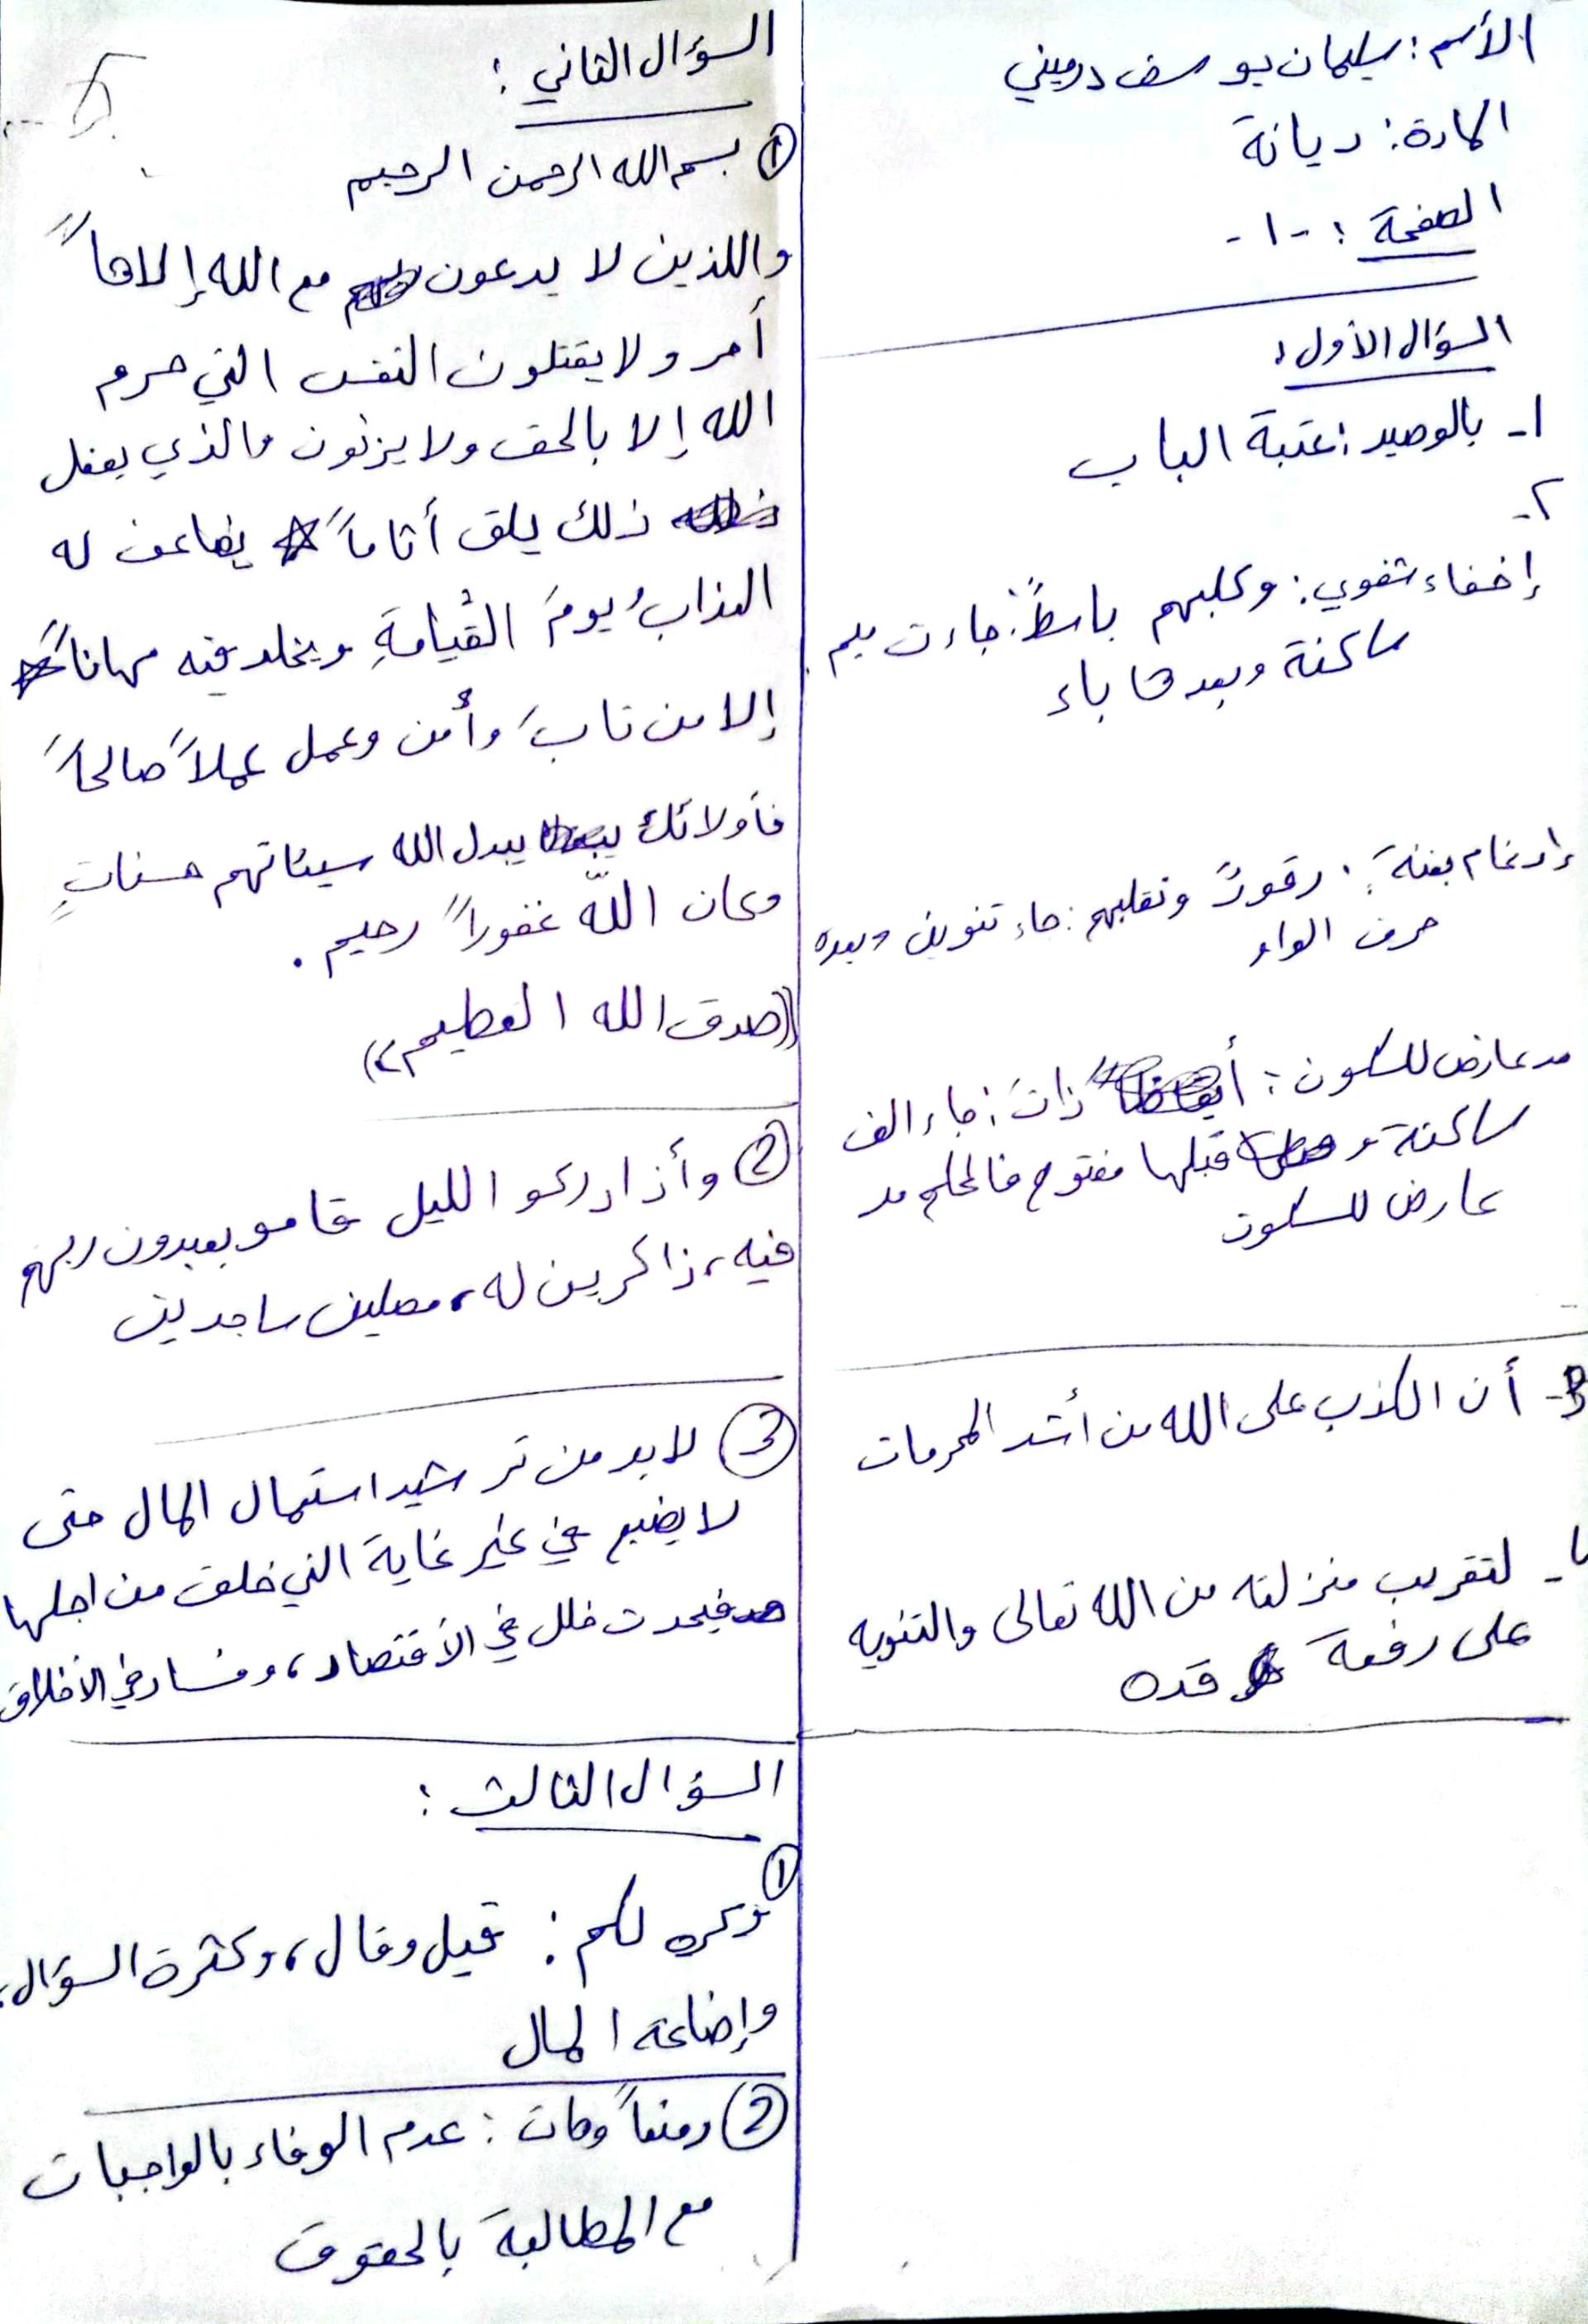 الأسم: سليمان يوسف درميني
المادة: ديانة
الصفحة: -١-
السؤال الأول:
١- بالوصيد: عتبة الباب
٢-
إخفاء شفوي: وكلبهم باسطٌ: جاءت ميم
ساكنة وبعدها باء
إدغام بغنة: رقودٌ ونقلبهم: جاء تنوين وبعده
حرف الواو
مد عارض للسكون: ذات: جاء الف
ساكنة و قبلها مفتوح فالحكم مد
عارض للسكون
3- أن الكذب على الله من أشد المحرمات
لتقريب منزلته من الله تعالى والتنويه
على رفعة قده
السؤال الثاني:
① بسم الله الرحمن الرحيم
واللذين لا يدعون مع الله إلاهاً
أمر ولا يقتلون النفس التي حرم
الله إلا بالحق ولا يزنون والذي يفعل
ذلك يلق أثاماً يضاعف له
العذابُ يومَ القيامةِ ويخلد فيه مهاناً
إلا من تابَ وأمن وعمل عملاً صالحاً
فأولائك يبدل الله سيئاتهم حسناتٍ
وكان اللّه غفوراً رحيم.
((صدق الله العظيم))
② وأذا دركو الليل قامو يعبدون ربهم
فيه، ذاكرين له، مصلين ساجدين
③ لابد من ترشيد استعمال المال حتى
لا يضيع في غير غاية التي خلق من اجلها
فيحدث خلل في الأقتصاد، وفساد في الأخلاق
السؤال الثالث:
①
وكره لكم: قيل وقال، وكثرة السؤال،
وإضاعة المال
② ومنعاً وهات: عدم الوفاء بالواجبات
مع المطالبة بالحقوق